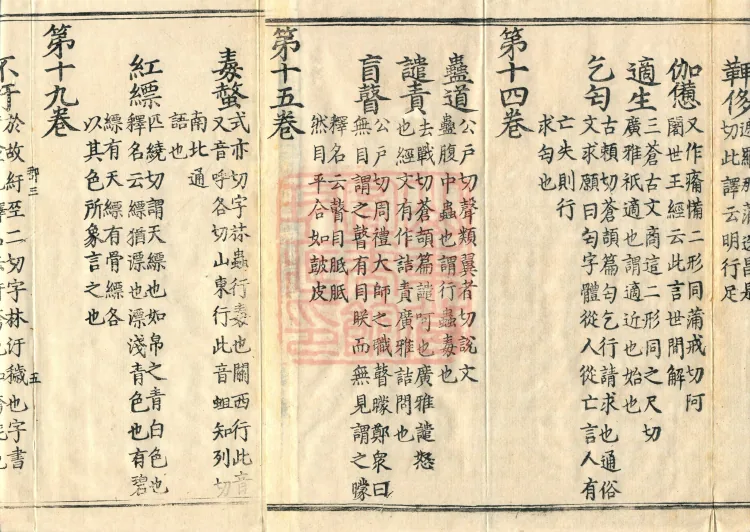 鞞侈
切此譯云明行足
伽憊又作痡㒍二形同蒲戒切阿
闍世王經云此言世間解
適生三蒼古文商這二形同之尺切
廣雅祇適也謂適近也始也
乞匃古賴切蒼頡篇匃乞行請求也通俗
文求願曰匃字體從人從亡言人有
亡失則行
求匃也
第十四卷
蠱道公戶切聲類翼者切說文
蠱腹中蟲也謂行蠱毒也
譴責去戰切蒼頡篇譴呵也廣雅譴怒
也經文有作詰責廣雅詰問也
盲瞽公戶切周禮大師之職瞽矇鄭眾曰
無目謂之瞽有目眹而無見謂之矇
釋名云瞽目眠眠
然目平合如鼓皮
第十五卷
毒螫式亦切字林蟲行毒也關西行此音
又音呼各切山東行此音蛆知列切
南北通
語也
紅縹匹繞切謂天縹也如帛之青白色也
釋名云縹猶漂也漂淺青色也有碧
縹有天縹有骨縹各
以其色所象言之也
第十九卷
不汙於故紆莝二切字林汙穢也字書
五